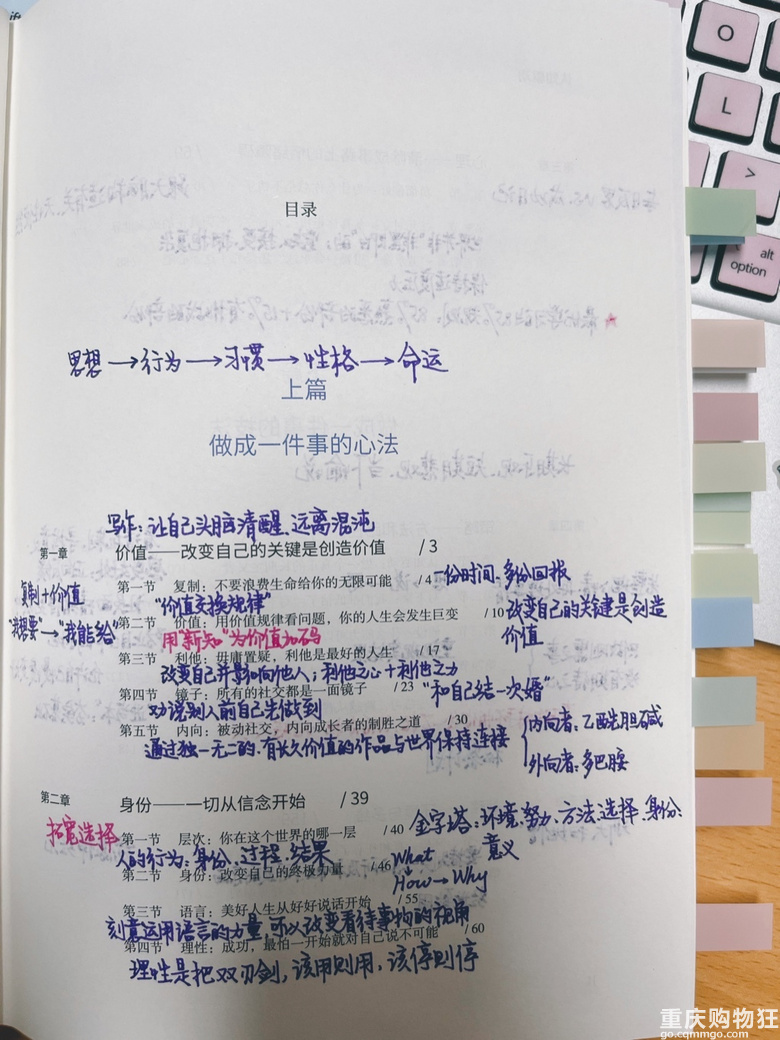 目录
思想→行为→习惯→性格→命运
上篇
做成一件事的心法
写作：让自己头脑清醒、远离混沌
第一章 价值——改变自己的关键是创造价值 /3
第一节 复制：不要浪费生命给你的无限可能 /4 一份时间，多份回报
复制+价值
"价值交换规律"
"我想要"→"我能给"
第二节 价值：用价值规律看问题，你的人生会发生巨变 /10 改变自己的关键是创造价值
用"新知"为价值加码
第三节 利他：毋庸置疑，利他是最好的人生 /17
改变自己并影响他人；利他之心+利他之力
第四节 镜子：所有的社交都是一面镜子 /23 "和自己结一次婚"
劝说别人前自己先做到
第五节 内向：被动社交，内向成长者的制胜之道 /30
通过独一无二的、有长久价值的作品与世界保持连接
内向者：乙酰胆碱
外向者：多巴胺
第二章 身份——一切从信念开始 /39
拓宽选择
第一节 层次：你在这个世界的哪一层 /40 金字塔：环境、努力、方法、选择、身份、意义
人的行为：身份、过程、结果
第二节 身份：改变自己的终极力量 /46
What
How→Why
第三节 语言：美好人生从好好说话开始 /55
刻意运用语言的力量，可以改变看待事物的视角
第四节 理性：成功，最怕一开始就对自己说不可能 /60
理性是把双刃剑，该用则用，该停则停
O
L
>
alt
option
重庆购物狂
go.cqmmgo.com